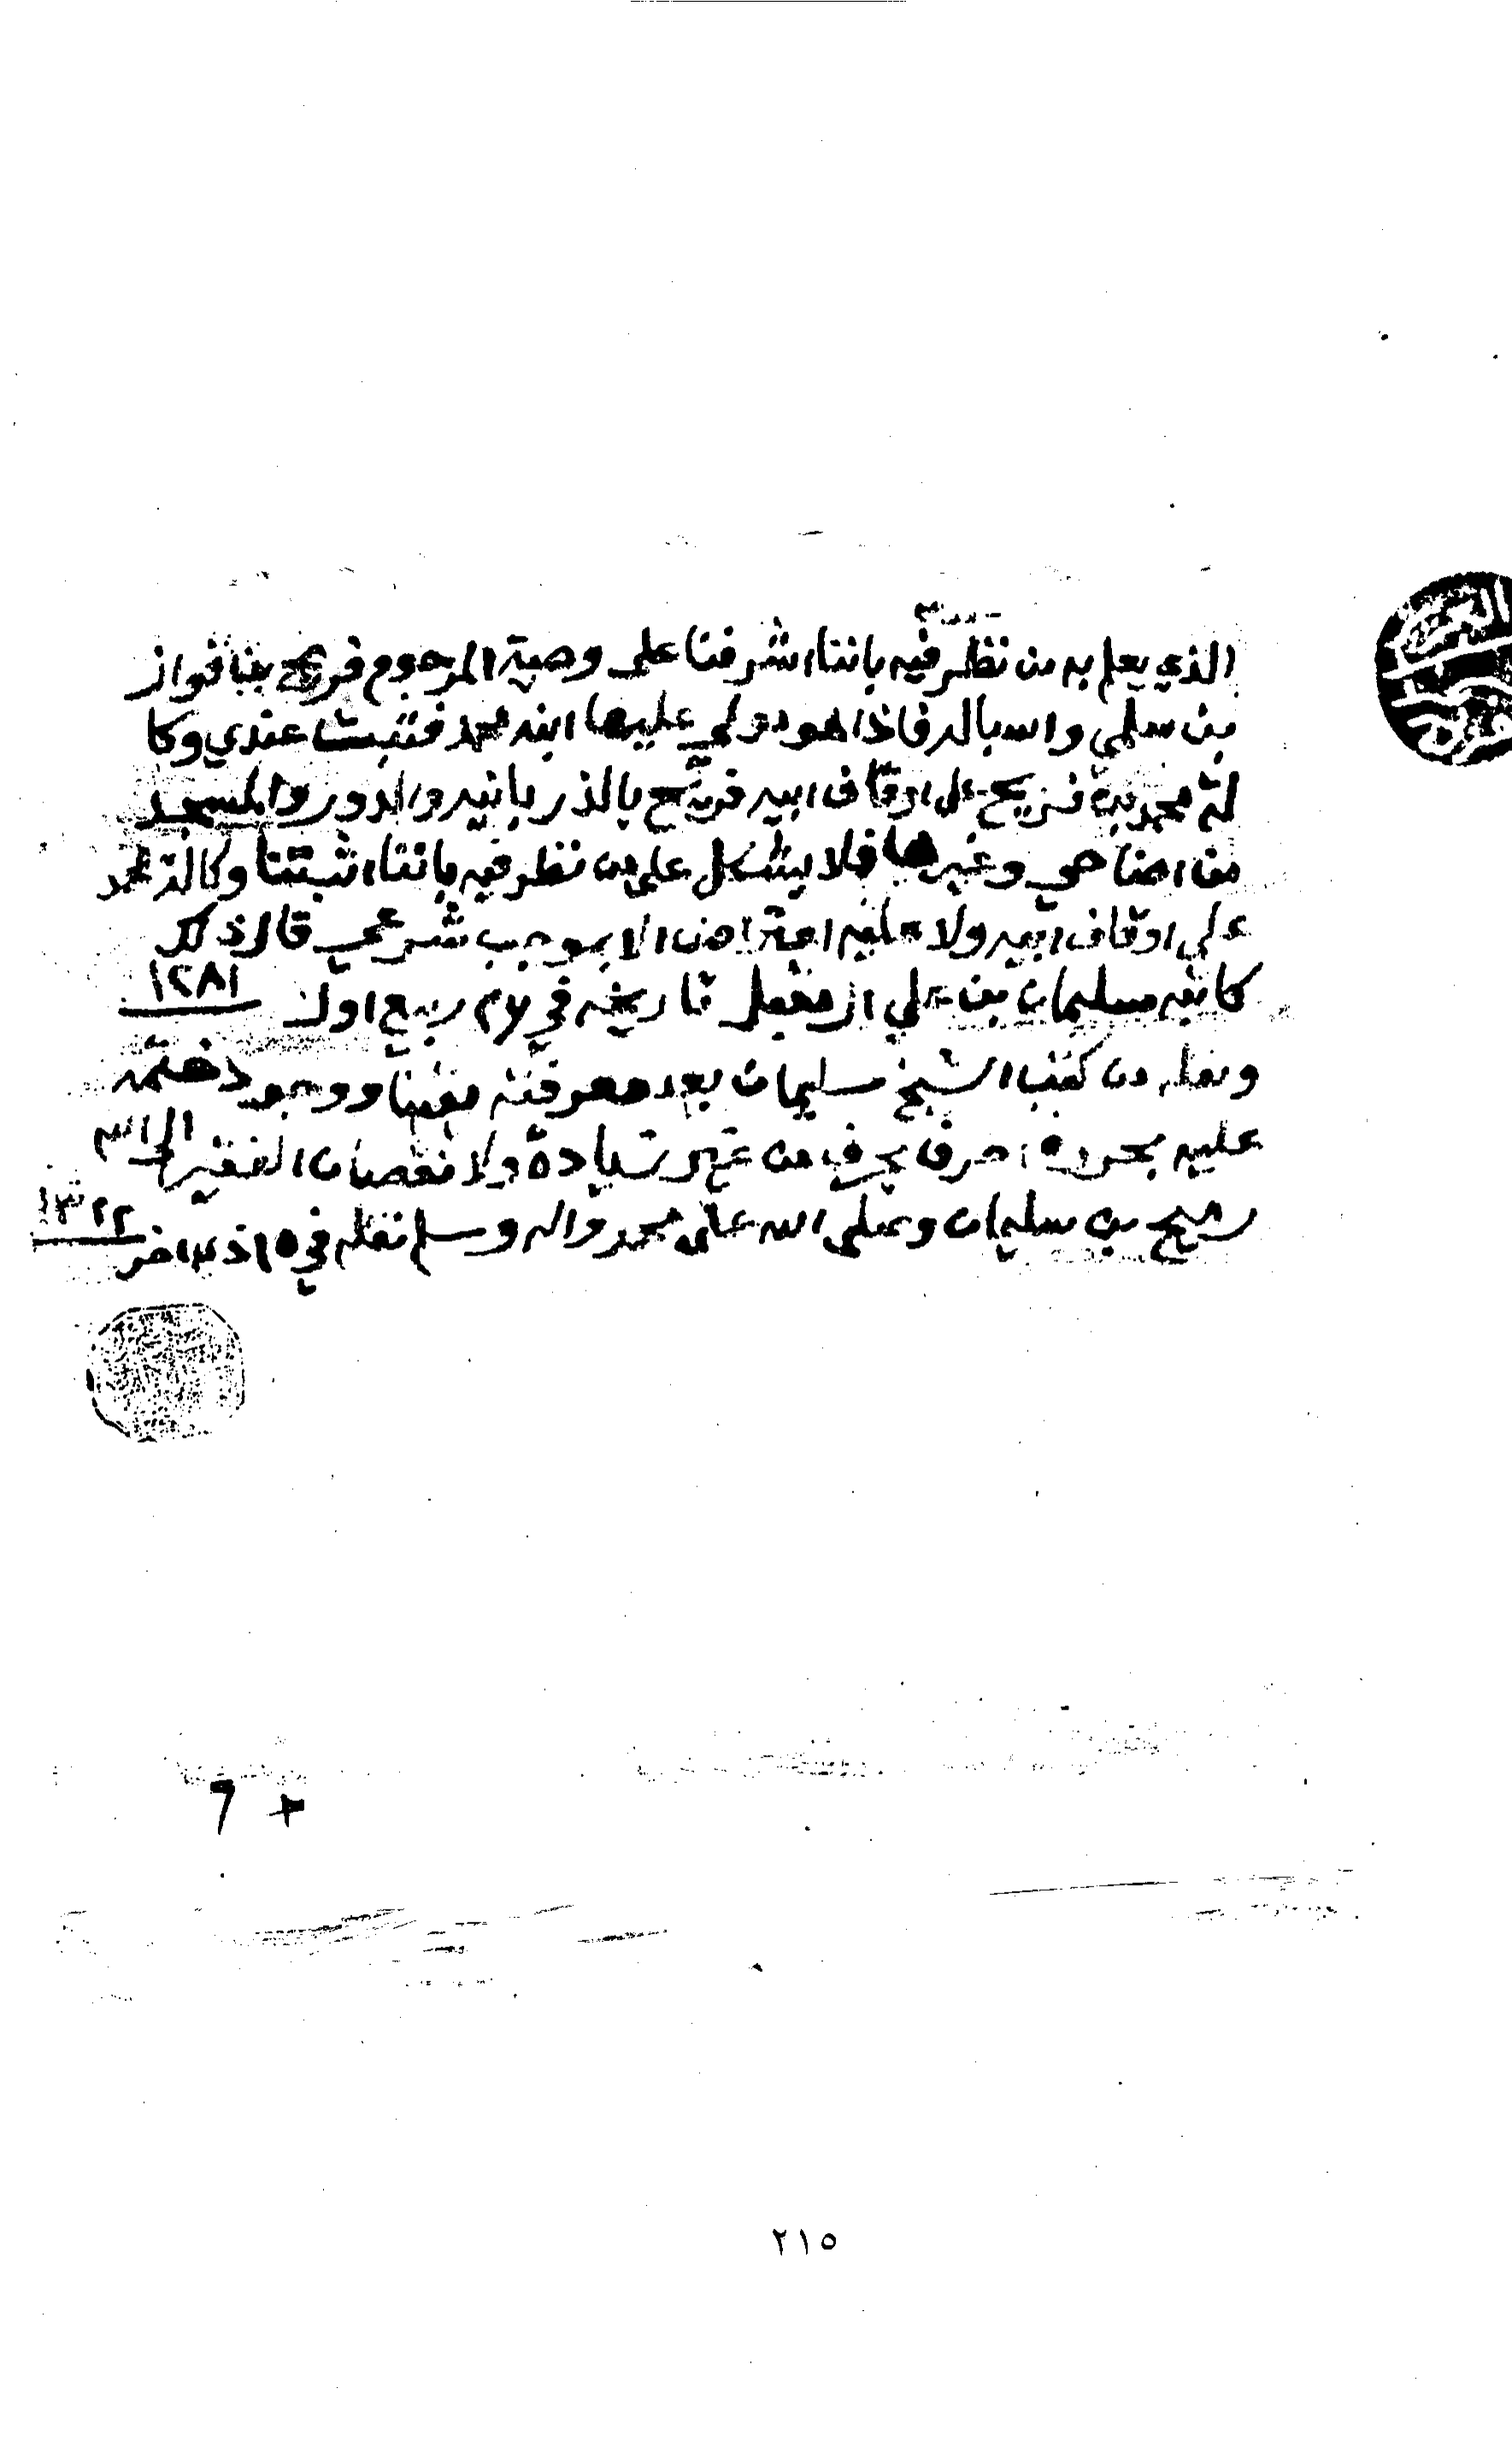 الذي يعلم به من نظر فيه باننا اشرفنا على وصية المرحوم فريح بنا فواز
بن سلمي واسباله فاذا هو مولي عليها ابنه محمد فثبت عندي وكا
لة محمد بن فريح على اوقاف ابيه فريح بالذربانيه والدور والمسجد
من اضاحي وغيرها فلا يشكل على من نظر فيه باننا اثبتنا وكالة محمد
علي اوقاف ابيه ولا عليه اعتراض الا بموجب شرعي قال ذلك
كاتبه سليمان بن علي ال مقبل تاريخه في ربيع اول ١٢٨١
ونقله من كتب الشيخ سليمان بعد معرفته يقينا ووجود ختمه
عليه بحروفه حرف بحرف من غير زيادة ولا نقصان الفقير الى الله
بن سليمان وصلى الله على محمد واله وسلم نقله في ١٥ ١٣٢٢
٦
٢١٥